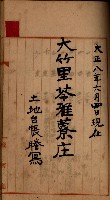 大正八年六月四日現在
大竹里苓雅寮庄
土地台帳謄寫